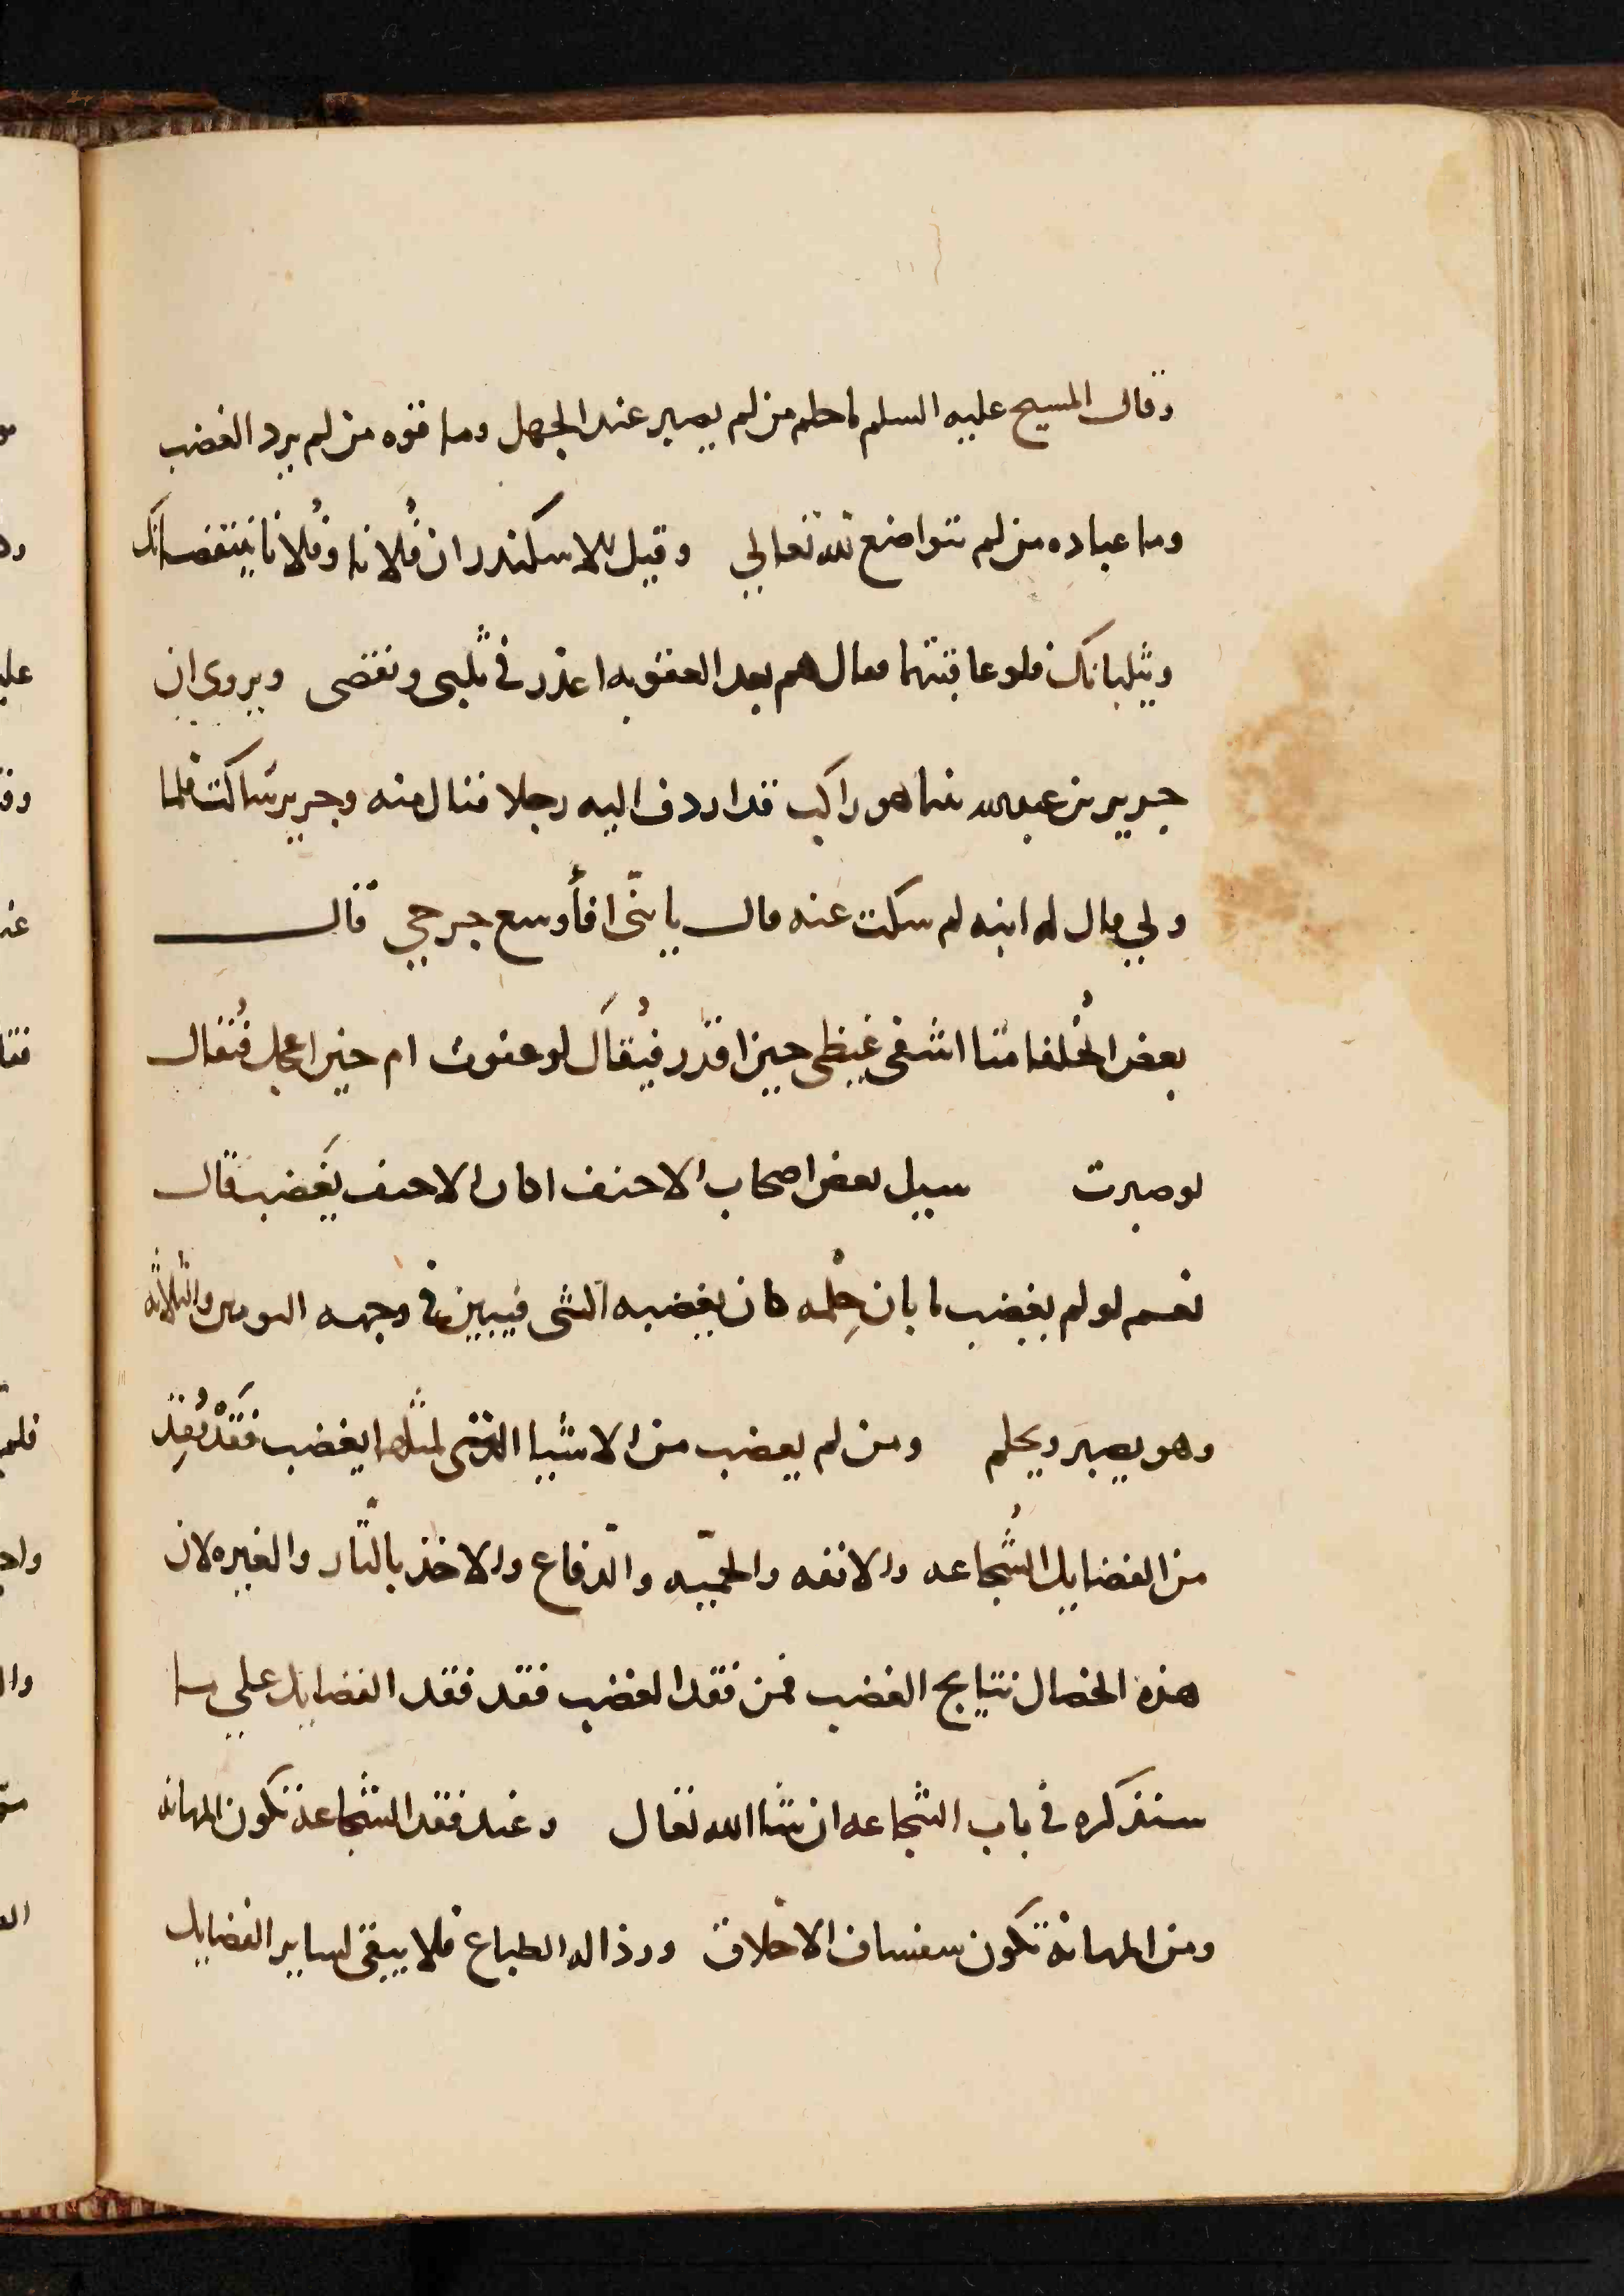 وقال المسيح عليه السلم ما حلم من لم يصبر عند الجهل وما قوه من لم يرد الغضب
وما عباده من لم يتواضع لله تعالي وقيل للاسكندر ان فُلانا وفُلانا ينتقصانك
ويثلبانك فلو عاقبتهما فقال هم بعد العقوبه اعذر في ثلبى ونقصى ويروى ان
جرير بن عبد الله بينما هو راكب قد اردف اليه رجلا فنال منه وجرير ساكت فلما
ولي قال له ابنه لم سكت عنه قال يا بنّى افأوسع جرحي قال
بعض الخُلفا متا اشفى غيظى حين اقدر فيُقال لو عفوت ام حين اعجل فيُقال
لو صبرت سيل بعض اصحاب الاحنف اكان الاحنف يغضب قال
نعم لو لم يغضب ما بان حِلمه كان يغضبه الشى فيبين في وجهه اليومين والثلاثه
وهو يصبر ويحلم ومن لم يغضب من الاشيا التى لمثلها يغضب فَقَدْ فُقِدَ
من الفضايل الشُجاعه والانفه والحميّه والدّفاع والاخذ بالثّار والغيره لان
هذه الخصال نتايج الغضب فمن فقد الغضب فقد فقد الفضايل علي ما
سنذكره في باب الشجاعه ان شا الله تعال وعند فقد الشجاعة تكون المهانه
ومن المهانة تكون سفساف الاخلاق ورذاله الطباع فلا يبقى لساير الفضايل